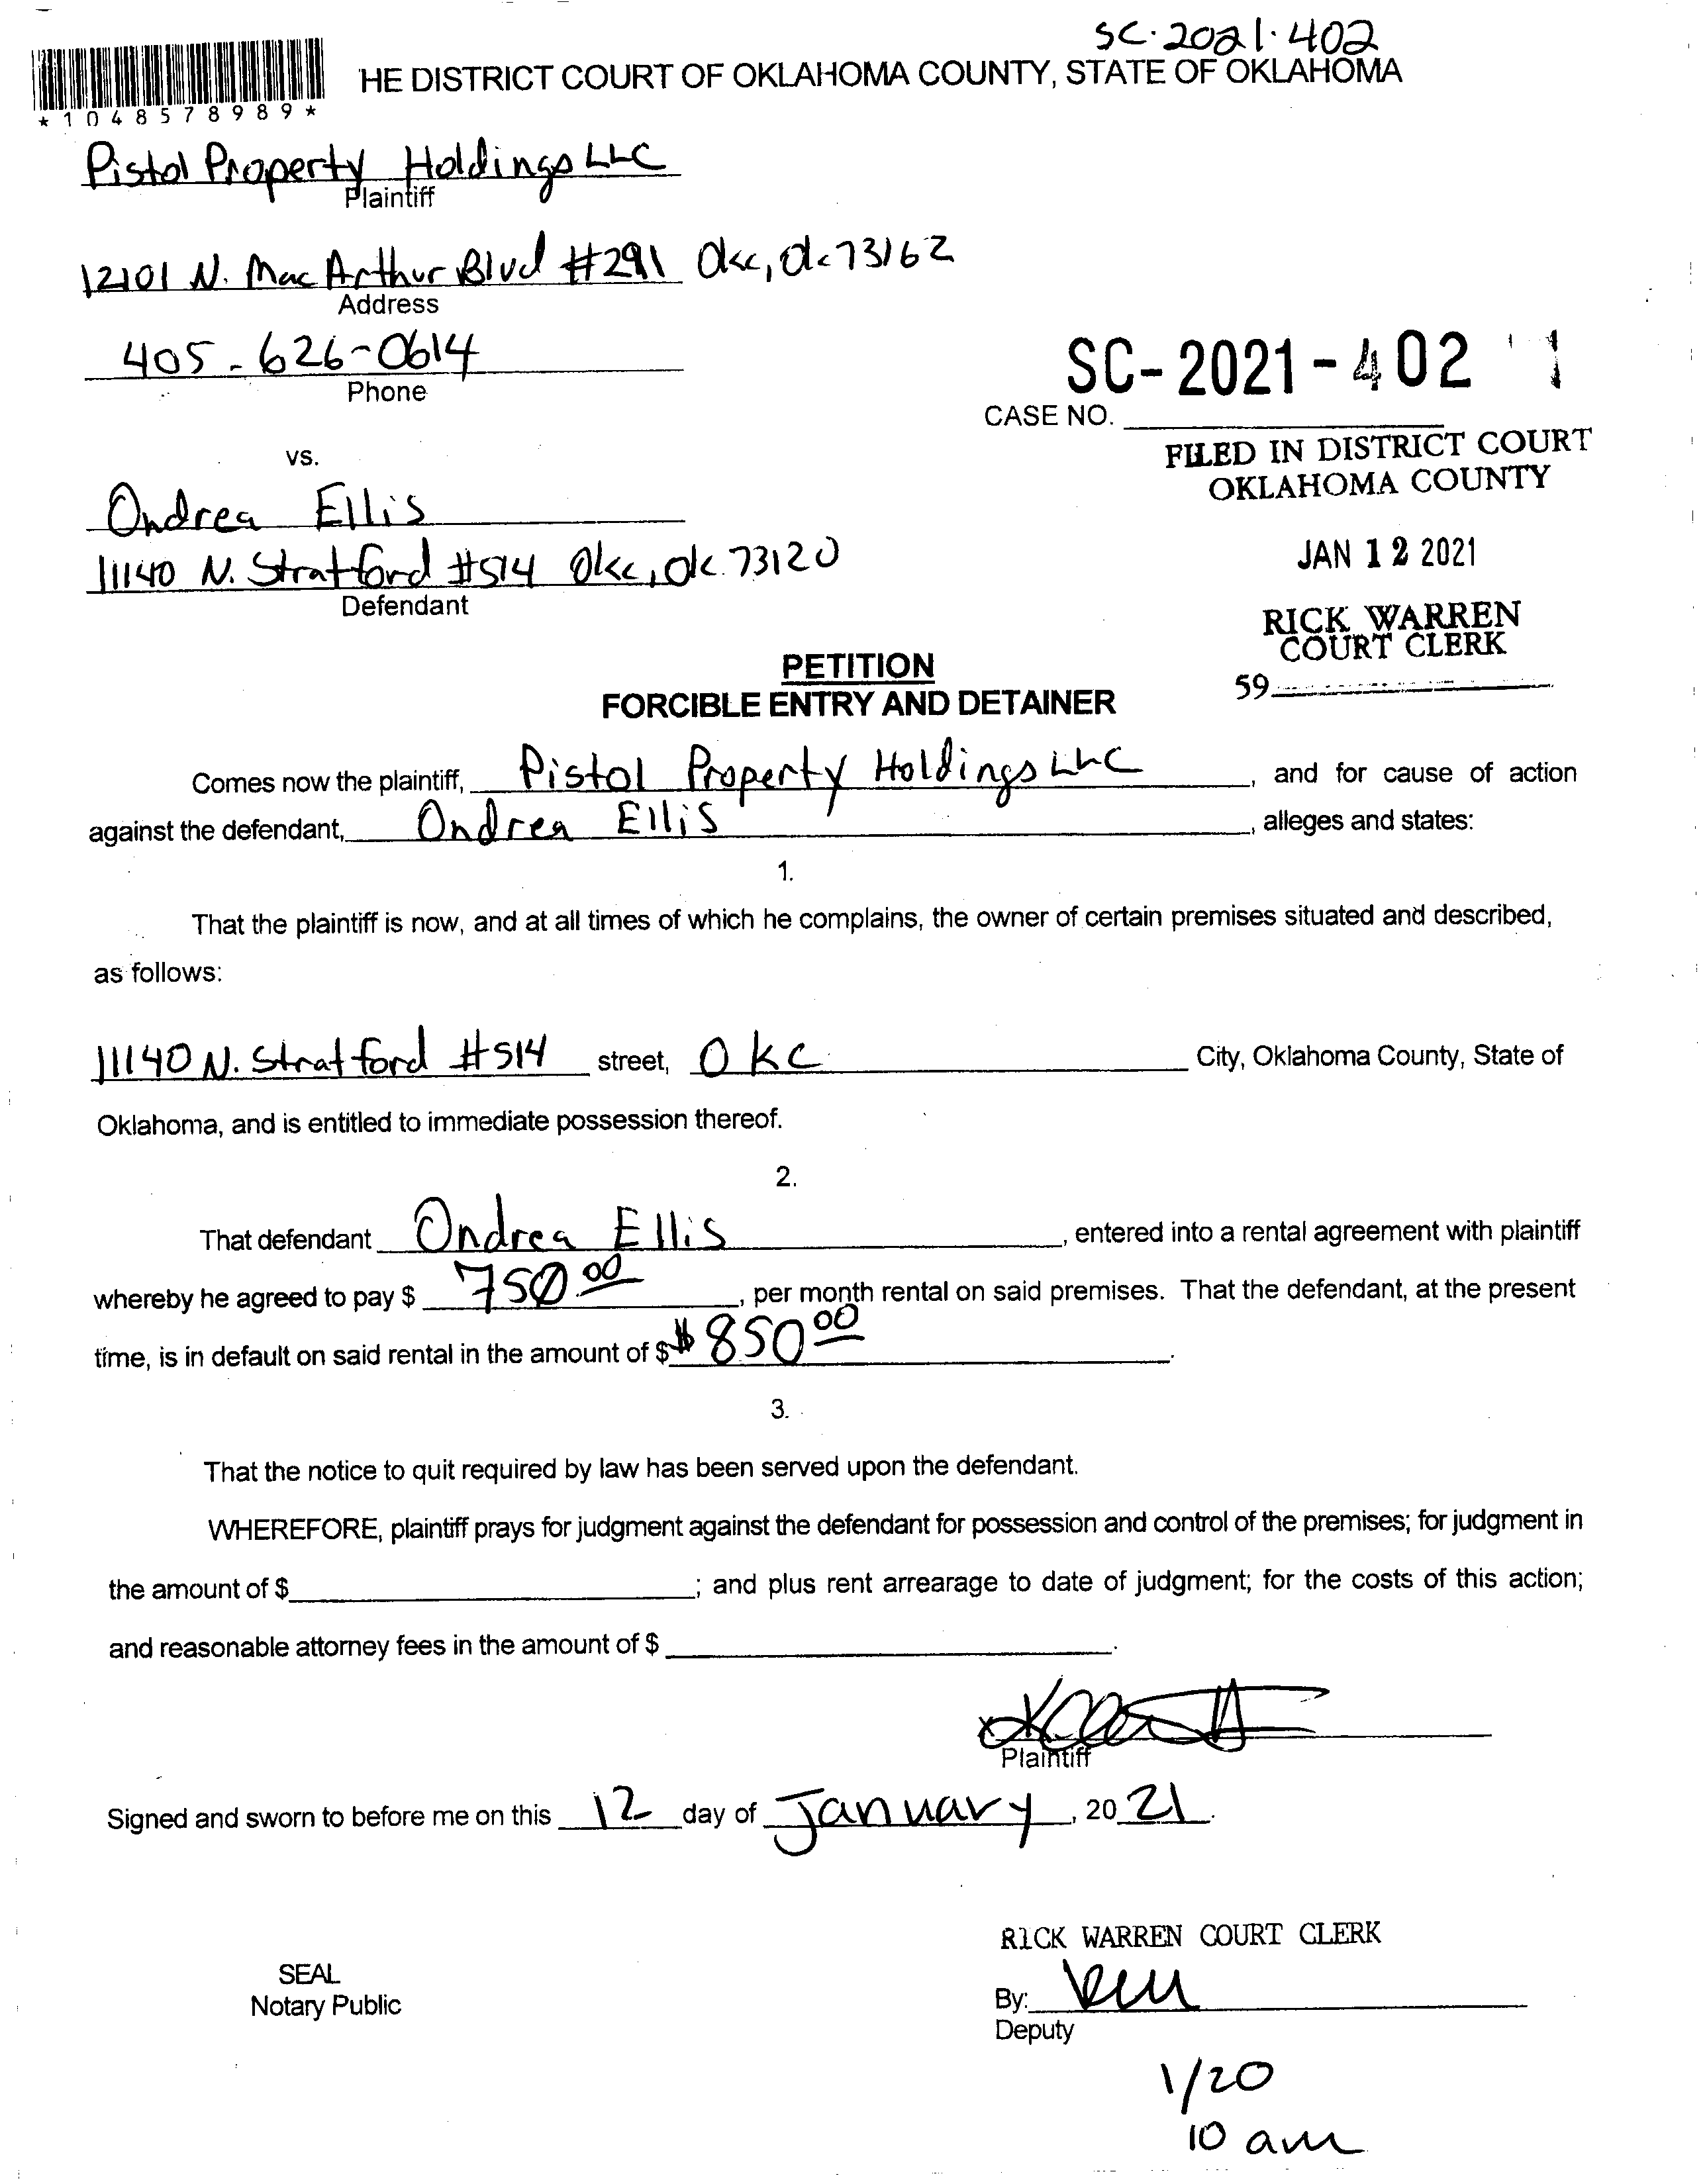 SC·2021·402
HE DISTRICT COURT OF OKLAHOMA COUNTY, STATE OF OKLAHOMA
*1048578989*
Pistol Property Holdings LLC
Plaintiff
12101 N. Mac Arthur Blvd #291 Okc, Ok 73162
Address
405-626-0614
Phone
SC-2021-402
CASE NO.
FILED IN DISTRICT COURT
OKLAHOMA COUNTY
vs.
Ondrea Ellis
11140 N. Stratford #514 Okc, Ok. 73120
Defendant
JAN 12 2021
RICK WARREN
COURT CLERK
59
PETITION
FORCIBLE ENTRY AND DETAINER
Comes now the plaintiff, Pistol Property Holdings LLC, and for cause of action
against the defendant, Ondrea Ellis, alleges and states:
1.
That the plaintiff is now, and at all times of which he complains, the owner of certain premises situated and described,
as follows:
11140 N. Stratford #514 street, OKC City, Oklahoma County, State of
Oklahoma, and is entitled to immediate possession thereof.
2.
That defendant Ondrea Ellis, entered into a rental agreement with plaintiff
whereby he agreed to pay $ 750.00, per month rental on said premises. That the defendant, at the present
time, is in default on said rental in the amount of $ $850 00.
3.
That the notice to quit required by law has been served upon the defendant.
WHEREFORE, plaintiff prays for judgment against the defendant for possession and control of the premises; for judgment in
the amount of $ ; and plus rent arrearage to date of judgment; for the costs of this action;
and reasonable attorney fees in the amount of $ .
x
Plaintiff
Signed and sworn to before me on this 12 day of January, 20 21.
RICK WARREN COURT CLERK
SEAL
Notary Public
By:
Deputy
1/20
10 am